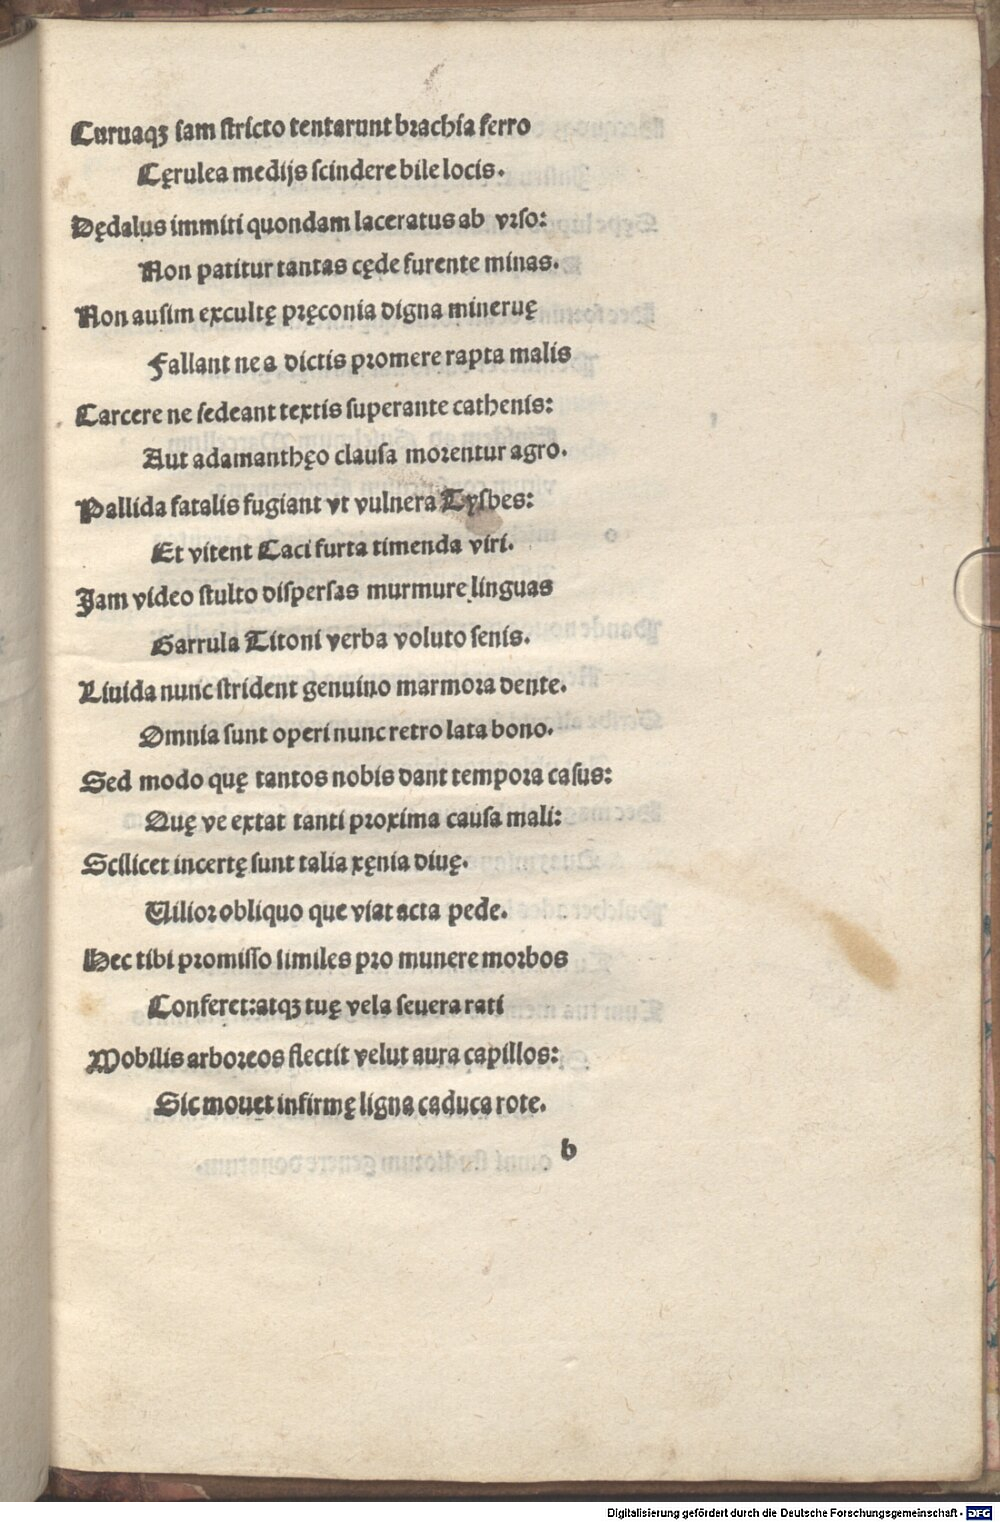 Curuaqꝫ iam ſtricto tentarunt brachia ferro
Cęrulea medijs ſcindere bile locis.
Dędalus immiti quondam laceratus ab vrſo:
Non patitur tantas cęde furente minas.
Non auſim excultę pręconia digna mineruę
Fallant ne a dictis promere rapta malis
Carcere ne ſedeant textis ſuperante cathenis:
Aut adamanthęo clauſa morentur agro.
Pallida fatalis fugiant vt vulnera Tyſbes:
Et vitent Caci furta timenda viri.
Jam video ſtulto diſperſas murmure linguas
Garrula Titoni verba voluto ſenis.
Liuida nunc ſtrident genuino marmora dente.
Omnia ſunt operi nunc retro lata bono.
Sed modo quę tantos nobis dant tempora caſus:
Quę ve extat tanti proxima cauſa mali:
Scilicet incertę ſunt talia xęnia diuę.
Uilior obliquo que viat acta pede.
Hec tibi promiſſo ſimiles pro munere morbos
Conferet:atqꝫ tuę vela ſeuera rati
Mobilis arboreos flectit velut aura capillos:
Sic mouet infirmę ligna caduca rote.
b
Digitalisierung gefördert durch die Deutsche Forschungsgemeinschaft - DFG